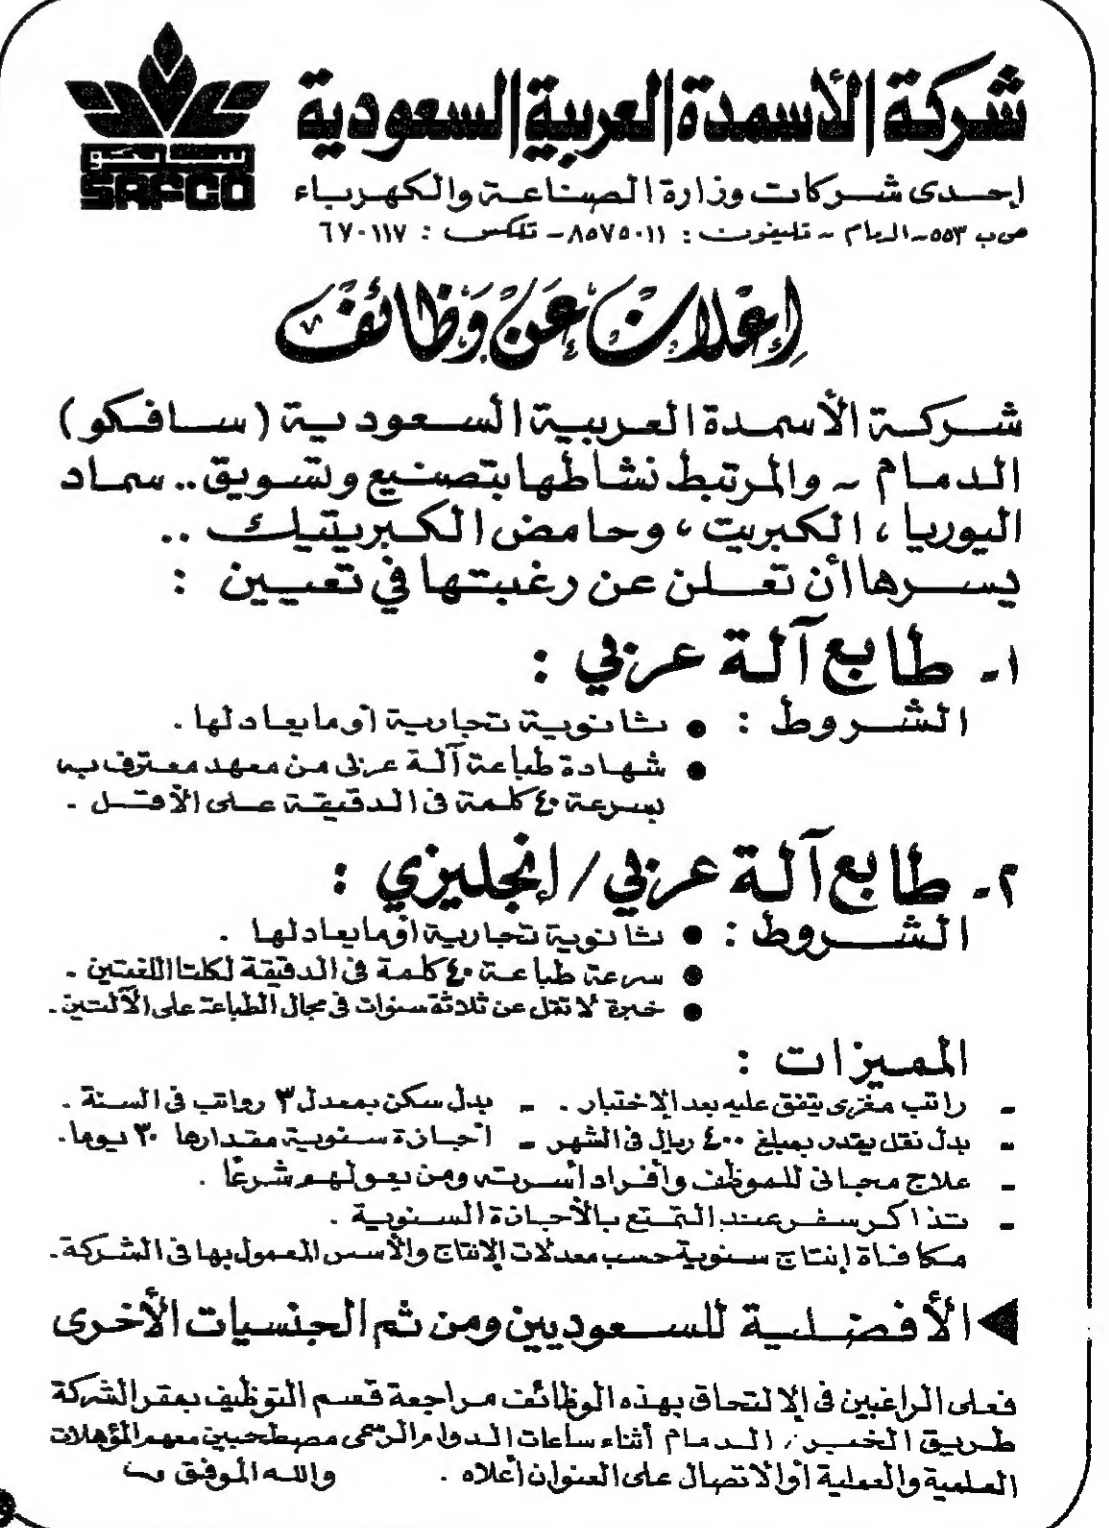 شركة الأسمدة العربية السعودية
سافكو
SAFCO
إحدى شركات وزارة الصناعة والكهرباء
ص.ب ٥٥٣ - الدمام - تليفون : ٨٥٧٥٠١١ - تلكس : ٦٧٠١١٧
إعلان عن وظائف
شركة الأسمدة العربية السعودية (سافكو)
الدمام - والمرتبط نشاطها بتصنيع وتسويق .. سماد
اليوريا ، الكبريت ، وحامض الكبريتيك ..
يسرها أن تعلن عن رغبتها في تعيين :
١- طابع آلة عربي :
الشروط : • ثانوية تجارية أو ما يعادلها .
• شهادة طباعة آلة عربى من معهد معترف به
بسرعة ٤٠ كلمة فى الدقيقة على الأقل .
٢- طابع آلة عربي / إنجليزي :
الشروط : • ثانوية تجارية أو ما يعادلها .
• سرعة طباعة ٤٠ كلمة فى الدقيقة لكلتا اللغتين .
• خبرة لا تقل عن ثلاثة سنوات فى مجال الطباعة على الآلتين .
المميزات :
- راتب مغرى يتفق عليه بعد الإختبار . - بدل سكن بمعدل ٣ رواتب فى السنة .
- بدل نقل يقدر بمبلغ ٤٠٠ ريال فى الشهر - أجازة سنوية مقدارها ٣٠ يوما .
- علاج مجانى للموظف وأفراد أسرته ومن يعولهم شرعًا .
- تذاكر سفر عند التمتع بالأجازة السنوية .
مكافأة إنتاج سنوية حسب معدلات الإنتاج والأسس المعمول بها فى الشركة .
الأفضلية للسعوديين ومن ثم الجنسيات الأخرى
فعلى الراغبين فى الإلتحاق بهذه الوظائف مراجعة قسم التوظيف بمقر الشركة
طريق الخبر / الدمام أثناء ساعات الدوام الرسمى مصطحبين معهم المؤهلات
العلمية والعملية أو الاتصال على العنوان أعلاه . والله الموفق